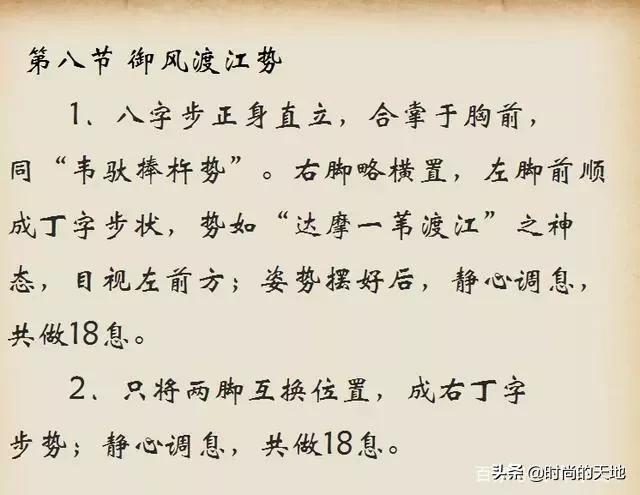 第八节 御风渡江势
1、八字步正身直立，合掌于胸前，
同“韦驮捧杵势”。右脚略横置，左脚前顺
成丁字步状，势如“达摩一苇渡江”之神
态，目视左前方；姿势摆好后，静心调息，
共做18息。
2、只将两脚互换位置，成右丁字
步势；静心调息，共做18息。
头条 @时尚的天地